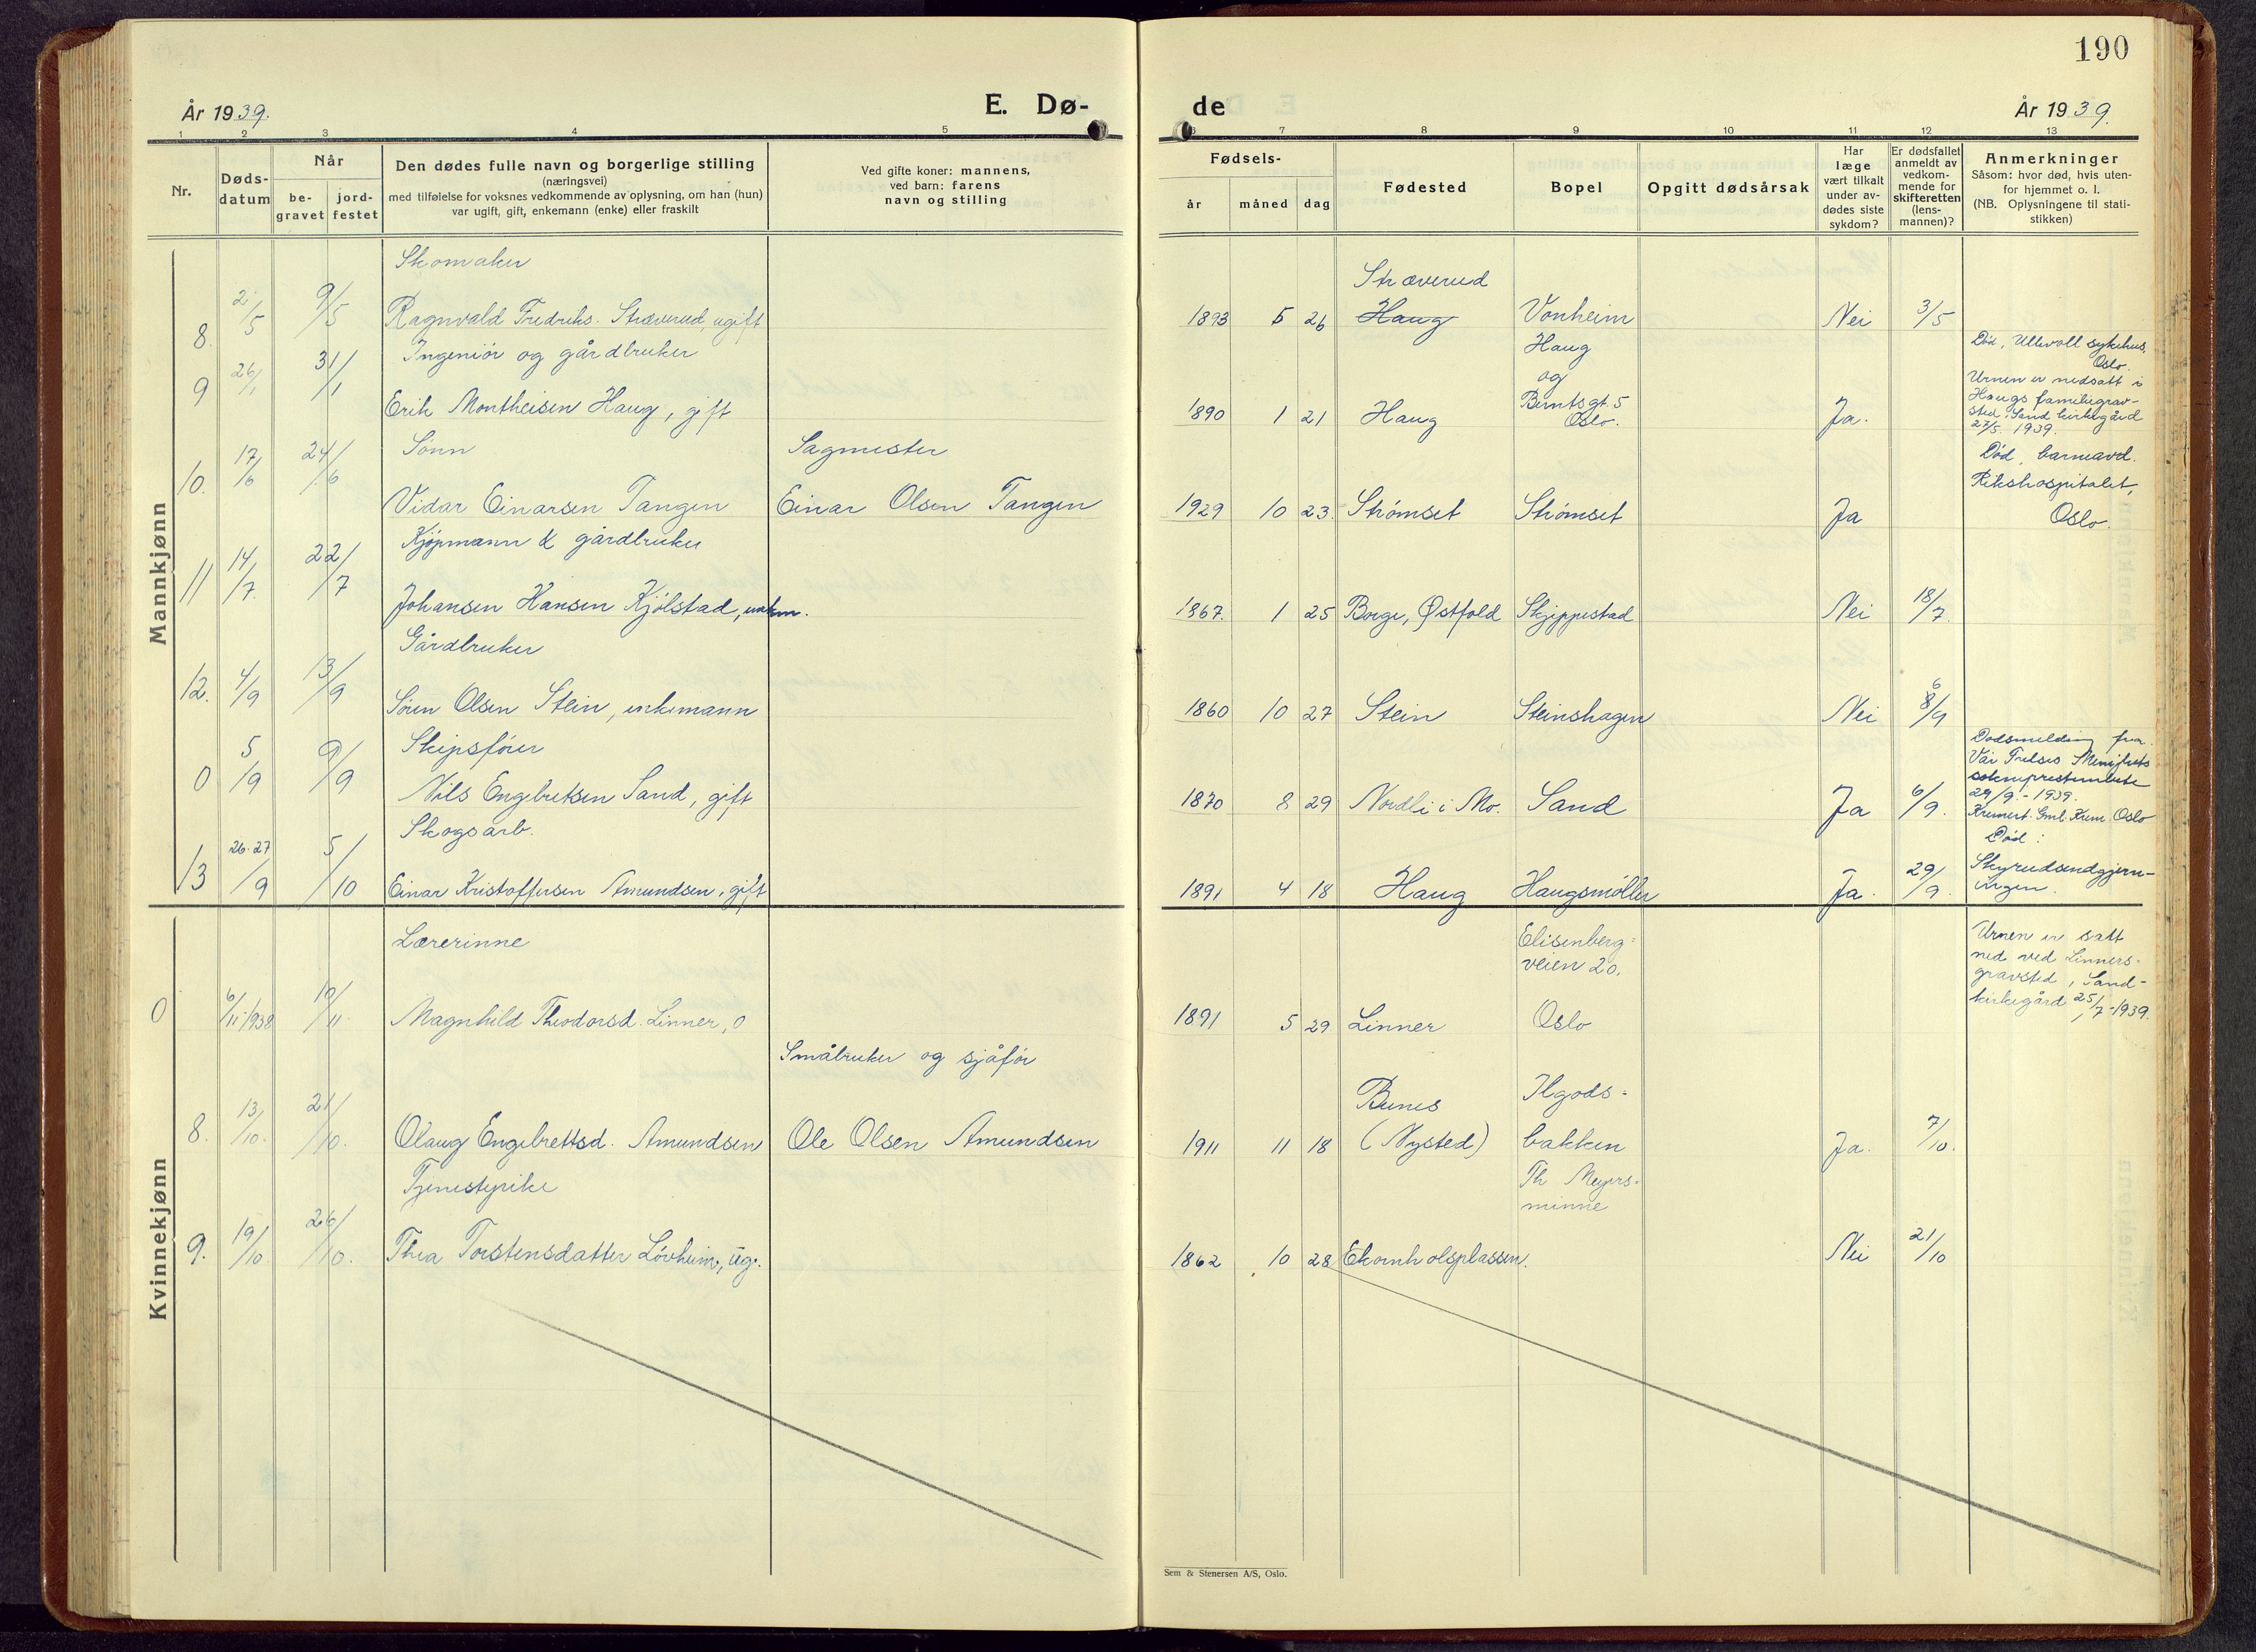 190
År 1939.
E. Dø-
de
År 1939.
1 2 3 4 5
6 7 8 9 10 11 12 13
Nr.
Døds-
datum
Når
be-
gravet
jord-
festet
Den dødes fulle navn og borgerlige stilling
(næringsvei)
med tilføielse for voksnes vedkommende av oplysning, om han (hun)
var ugift, gift, enkemann (enke) eller fraskilt
Ved gifte koner: mannens,
ved barn: farens
navn og stilling
Fødsels-
år måned dag
Fødested
Bopel
Opgitt dødsårsak
Har
læge
vært tilkalt
under av-
dødes siste
sykdom?
Er dødsfallet
anmeldt av
vedkom-
mende for
skifteretten
(lens-
mannen)?
Anmerkninger
Såsom: hvor død, hvis uten-
for hjemmet o. l.
(NB. Oplysningene til stati-
stikken)
Mannkjønn
Skomaker
Stræverud
8. 2/5 9/5 Ragnvald Fredriks. Stræverud, ugift 1893 5 26 Haug Vonheim Nei 3/5
Ingeniör og gårdbruker
Haug
og
Død, Ullevoll sykehus,
Oslo.
9 26/1 31/1 Erik Montheisen Haug, gift 1890 1 21 Haug Berntsgt. 5
Oslo. Ja.
Urnen er nedsatt i
Haugs familiegrav-
sted, Sand kirkegård
27/5. 1939.
Sønn Sagmester
10. 17/6 24/6 Vidar Einarsen Tangen Einar Olsen Tangen 1929 10 23. Strømset Strømset Ja
Død, barneavd.
Rikshospitalet,
Oslo.
Kjøpmann & gårdbruker
11 14/7. 22/7 Johansen Hansen Kjölstad, enkm. 1867. 1 25 Borge, Østfold Skjippestad Nei 18/7.
Gårdbruker
12. 4/9 13/9 Sören Olsen Stein, enkemann 1860 10 27 Stein Steinshagen Nei 6
8/9
Skipsförer
0 5/9 9/9 Nils Engebretsen Sand, gift 1870 8 29 Nordli i Mo. Sand Ja 6/9.
Dødsmelding fra
Vår Frelses Menighets
sokneprestembete
29/9.-1939.
Kremert. Gml. Krem. Oslo
Skogsarb.
13 26-27/9 5/10 Einar Kristoffersen Amundsen, gift 1891 4 18 Haug Haugsmöller Ja. 29/9.
Død:
Skyrudsendgjern-
ingen.
Kvinnekjønn
Lærerinne
Elisenberg-
veien 20.
0 6/11-1938 10/11. Magnhild Theodorsd. Linner, 0 1891 5 29 Linner Oslo
Urnen er satt
ned ved Linners-
gravsted, Sand-
kirkegård 25/7-1939.
Småbruker og sjåför
Bunes Ilgods-
8. 13/10. 21/10. Olaug Engebrettsd. Amundsen Ole Olsen Amundsen 1911 11 18 (Nysted) bakken Ja. 7/10.
Tjenestepike
Th Meyers-
minne
9. 19/10. 26/10. Thea Torstensdatter Lövheim, ug. 1862 10 28 Ekornholsplassen. Nei 21/10
Sem & Stenersen A/S, Oslo.